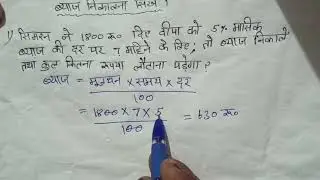 ब्याज निकालना सिखें।
1) सिमरन ने 1800 रू० दिए दीपा को 5% मासिक
ब्याज की दर पर 7 महिने के लिए, तो ब्याज निकालें
तथा कुल कितना रूपया लौटाना पड़ेगा?
ब्याज = मूलधन × समय × दर
100
= 1800 × 7 × 5 = 630 रू०
100